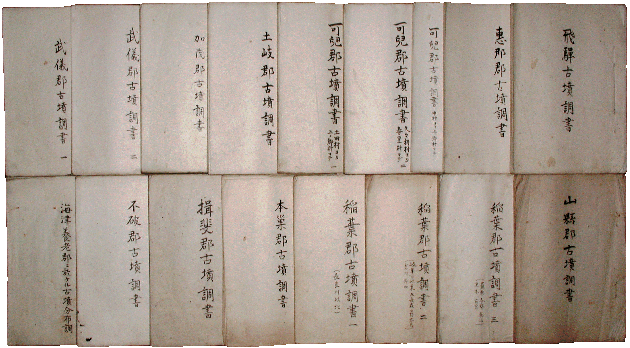 飛驒古墳調書
惠那郡古墳調書
可兒郡古墳調書
可兒郡古墳調書
可兒郡古墳調書 一
土岐郡古墳調書
加茂郡古墳調書
武儀郡古墳調書 二
武儀郡古墳調書 一
山縣郡古墳調書
稲葉郡古墳調書 三
稲葉郡古墳調書 二
稲葉郡古墳調書 一
本巣郡古墳調書
揖斐郡古墳調書
不破郡古墳調書
海津養老郡 古墳分布調